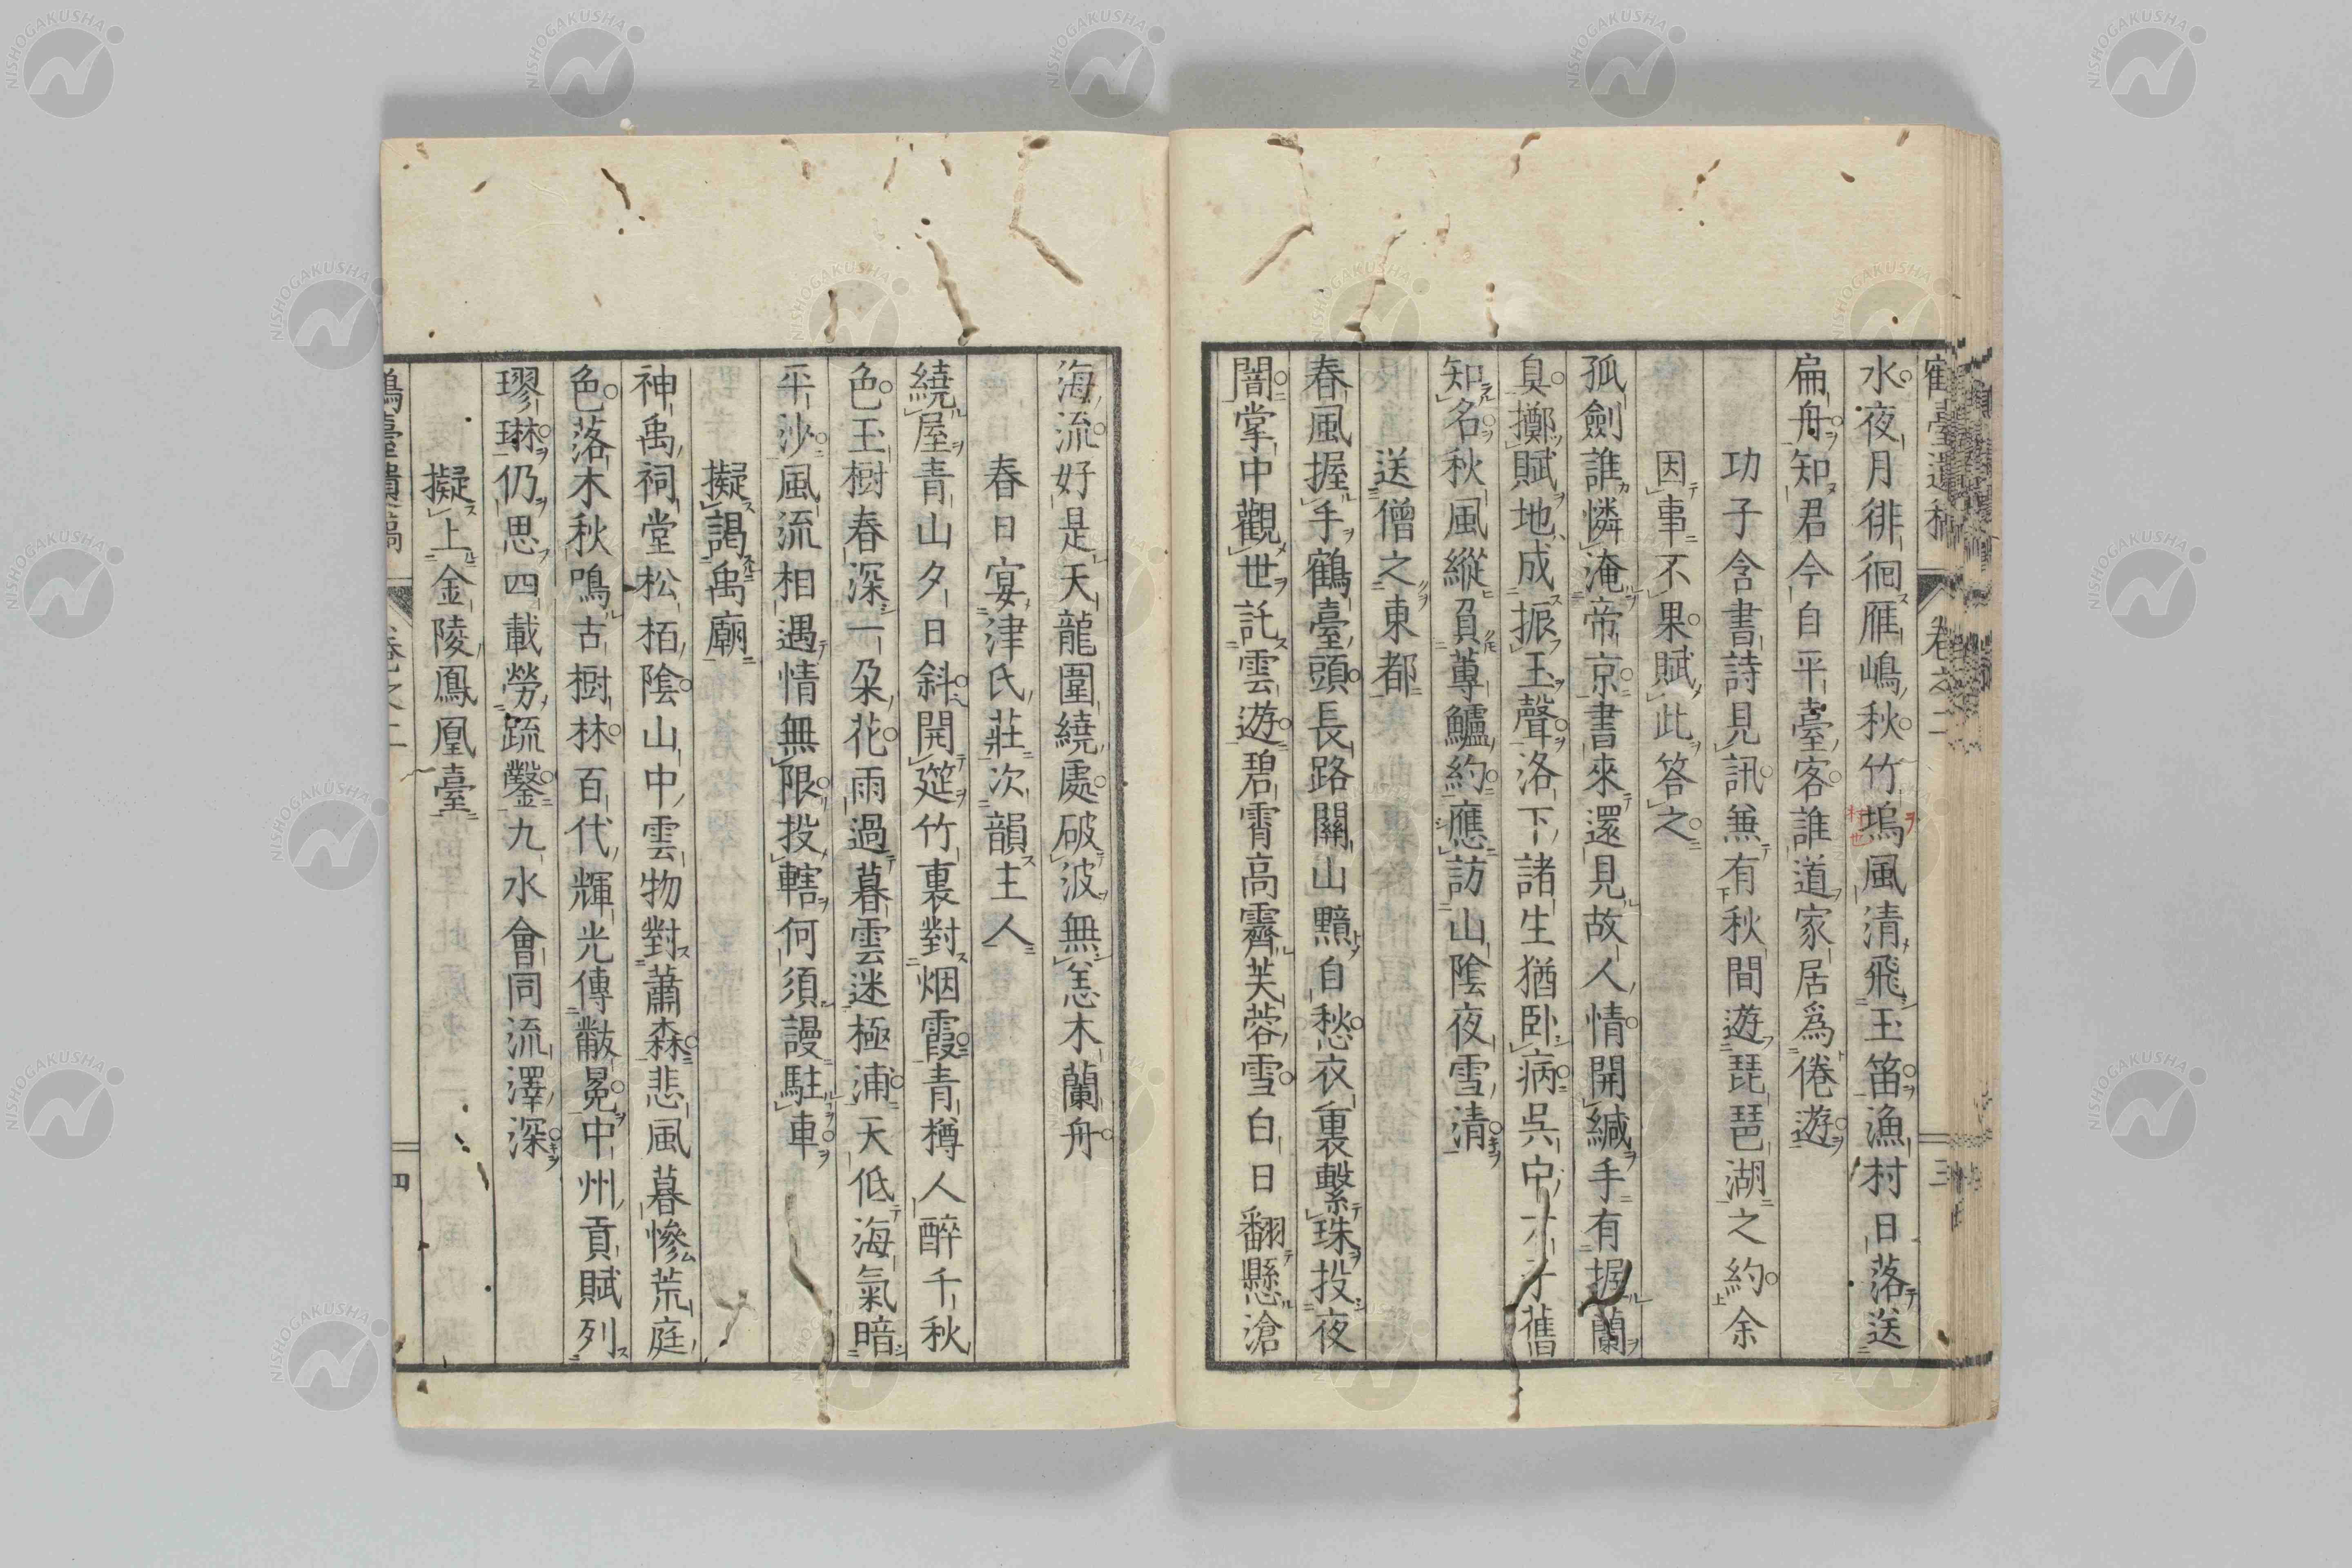 水夜月徘徊雁嶋秋竹塢風清飛玉笛漁村日落送
扁舟知君今自平臺客誰道家居爲倦遊
功子含書詩見訊無有秋間遊琵琶湖之約余
因事不果賦此答之
孤劍誰憐淹帝京書來還見故人情開緘手有握蘭
臭擲賦地成振玉聲洛下諸生猶臥病吳中才子舊
知名秋風縱負蓴鱸約應訪山陰夜雪清
送僧之東都
春風握手鶴臺頭長路關山黯自愁衣裏繫珠投夜
闇掌中觀世託雲遊碧霄高霽芙蓉雪白日翻懸滄
海流好是天龍圍繞處破波無恙木蘭舟
春日宴津氏莊次韻主人
繞屋青山夕日斜開筵竹裏對烟霞青樽人醉千秋
色玉樹春深一朶花雨過暮雲迷極浦天低海氣暗
平沙風流相遇情無限投轄何須謾駐車
擬謁禹廟
神禹祠堂松栢陰山中雲物對蕭森悲風暮慘荒庭
色落木秋鳴古樹林百代輝光傳黻冕中州貢賦列
璆琳仍思四載勞疏鑿九水會同流澤深
擬上金陵鳳凰臺
鶴臺遺稿 卷之二 四
NISHOGAKUSHA